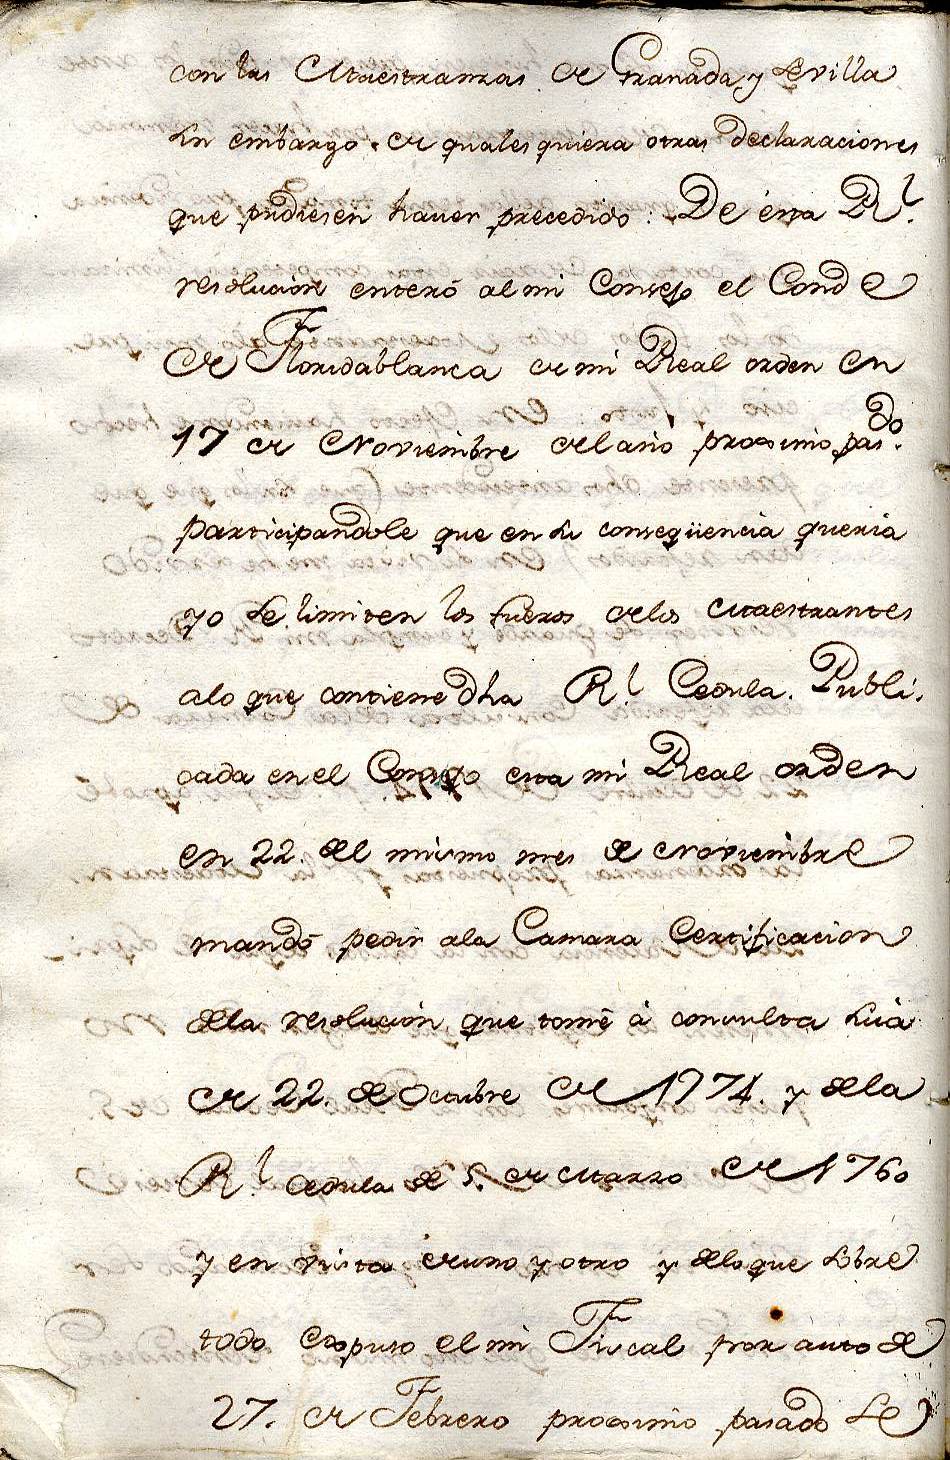 con las Maestranzas de Granada, y Sevilla
sin embargo de qualesquiera otras declaraciones
que pudiesen haver precedido: De ésta Rl.
resolucion enteró al mi Consejo el Conde
de Floridablanca de mi Real orden en
17 de Noviembre del año proximo pasdo.
participandole que en su conseqüencia queria
yo se limiten los fueros delos Maestrantes
alo que contiene dha Rl. Cedula. Publi-
cada en el Consejo esta mi Real orden
en 22. del mismo mes de Noviembre
mandó pedir ala Camara Certificacion
dela resolucion que tomé á consulta suia
de 22. de Octubre de 1774. y dela
Rl. cedula de 5. de Marzo de 1760
y en vista de uno y otro y delo que sobre
todo expuso el mi Fiscal por auto de
27. de Febrero proximo pasado se